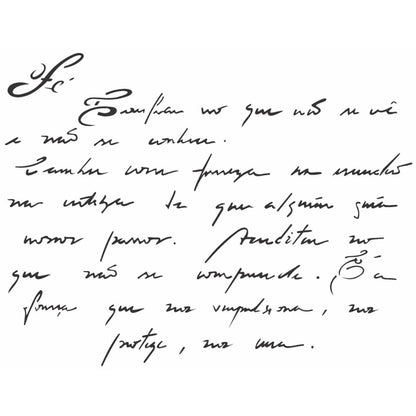 Fé
Confiar no que não se vê
e não se conhece.
Caminhar com firmeza na escuridão
na certeza de que alguém guia
nossos passos. Acreditar no
que não se compreende. É a
força que nos impulsiona, nos
protege, nos una.